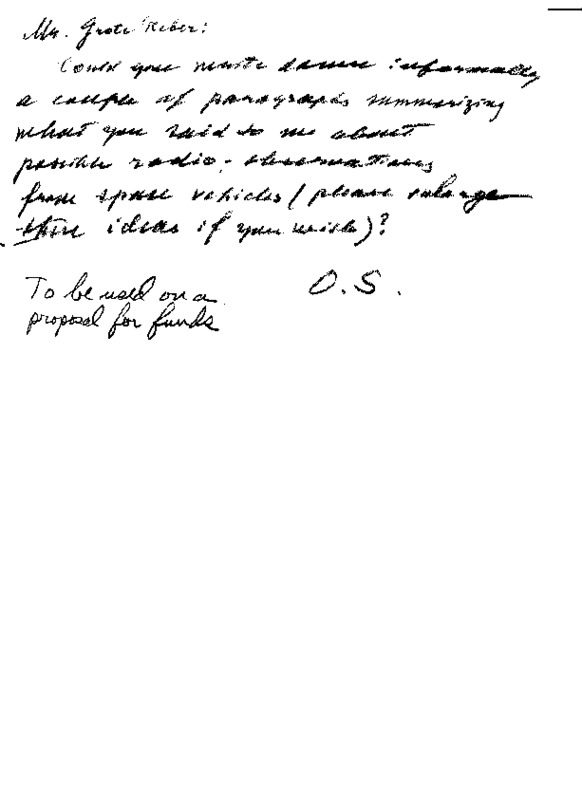 Mr. Grote Reber:
Could you write down informally
a couple of paragraphs summarizing
what you said to me about
possible radio-observations
from space vehicles (please enlarge
these ideas if you wish)?
O.S.
To be used on a
proposal for funds